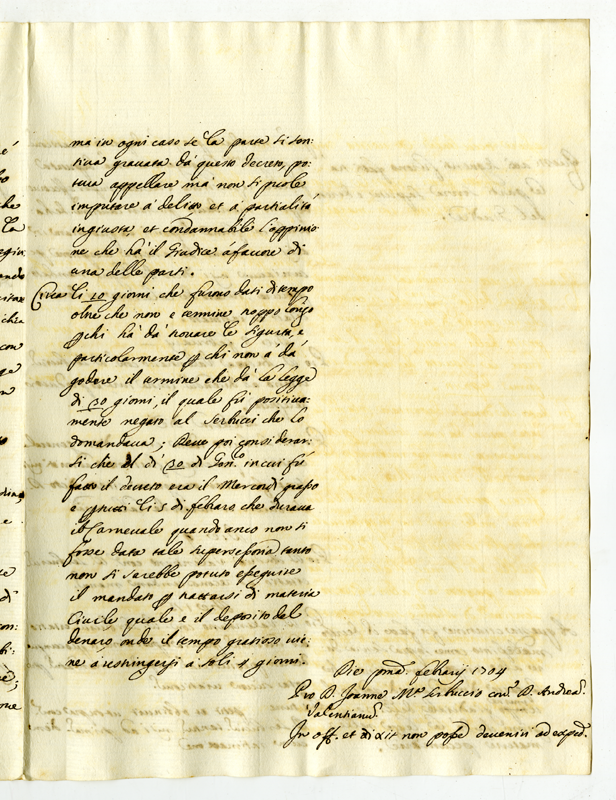 ma in ogni caso se la parte si sen:
tiva gravata da questo decreto, po:
teva appellare mà non si puole
imputare a delitto et a partialità
ingiusta et condannabile l'oppinio
ne che ha il Giudice à favore di
una delle parti.
Circa li 10 giorni che furono dati di tempo
oltre che non e termine troppo longo
ꝑ chi ha da trovare le sigurtà, e
particolarmente ꝑ chi non à da
godere il termine che dà la legge
di 30 giorni, il quale fù positiva:
mente negato al Serlucci che lo
domandava; Deve poi considerar:
si che il dì 30 di Gen.ro in cui fù
fatto il decreto era il Mercordì grasso
e ꝑ tutti li 5 di febraro che durava
il Carnevale quando anco non si
fosse data tale supersessoria tanto
non si sarebbe potuto eseguire
il mandato ꝑ trattarsi di materia
Civile quale e il deposito del
denaro onde il tempo gratioso vie:
ne a restringersi a soli 4 giorni.
Die pma. februarij 1704
Pro D. Joanne M.a Serluccio con. D. Andrea
Valentianu.
In off. et dixit non posse deveniri ad exped.